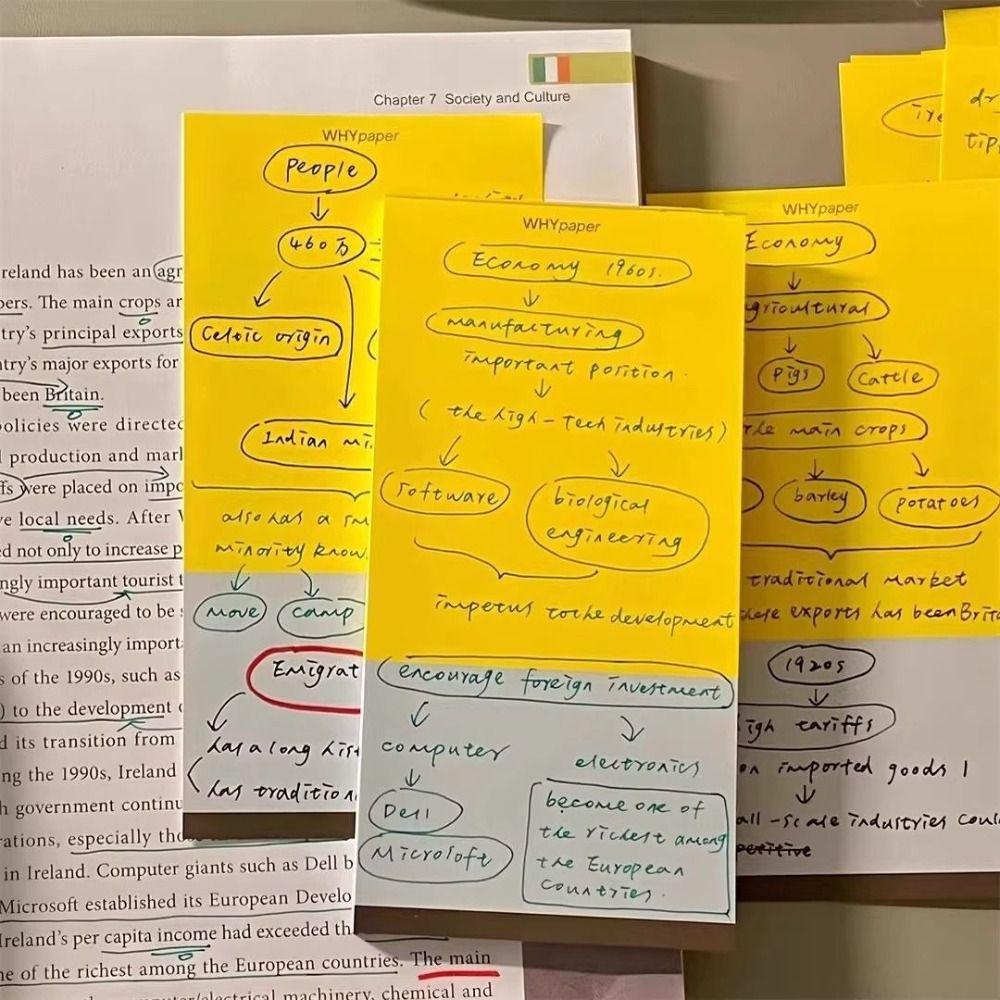 Chapter 7 Society and Culture
reland has been an agr
pers. The main crops ar
try's principal exports
ntry's major exports for
been Britain.
policies were directed
production and mark
fs were placed on impo
ve local needs. After
ed not only to increase p
ngly important tourist t
were encouraged to be
an increasingly import
s of the 1990s, such as
) to the development
d its transition from
ng the 1990s, Ireland
h government continu
rations, especially tho
in Ireland. Computer giants such as Dell
Microsoft established its European Develo
Ireland's per capita income had exceeded th
ne of the richest among the European countries. The main
machinery, chemical and
WHYpaper
People
460万
Celtic origin
Indian mi
also has a sm
minority know
move camp
Emigrat
has a long hist
has tradition
WHYpaper
Economy 1960s.
manufacturing
important position.
(the high-tech industries)
software
biological
engineering
impetus to the development
encourage foreign investment
computer
electronics
Dell
Microsoft
become one of
the richest among
the European
Countries.
WHYpaper
Economy
gricultural
Pigs Cattle
the main crops
barley potatoes
traditional market
hese exports has been Brita
1920s
igh tariffs
on imported goods
all-scale industries coul
ire
dr
tip